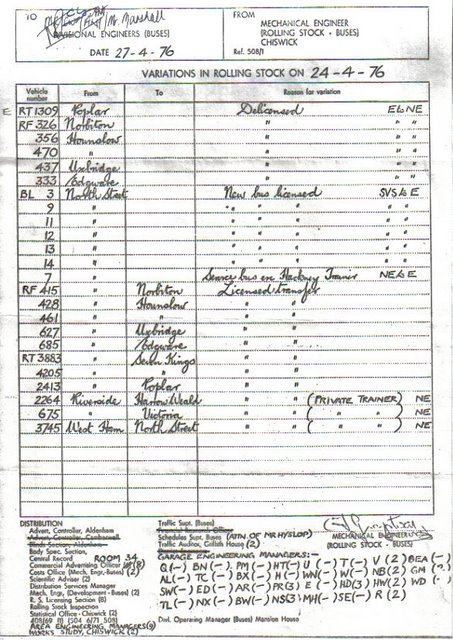 TO
Mr. Marshall
DIVISIONAL ENGINEERS (BUSES)
DATE 27-4-76
FROM
MECHANICAL ENGINEER
(ROLLING STOCK - BUSES)
CHISWICK
Ref. 508/1
VARIATIONS IN ROLLING STOCK ON 24-4-76
Vehicle number From To Reason for variation
E RT 1309 Poplar Delicensed E&NE
RF 326 Norbiton " " "
356 Hounslow " " "
470 " " " "
437 Uxbridge " " "
333 Edgware " " "
BL 3 North Street New bus licensed SVS&E
9 " " " " " "
11 " " " " " "
12 " " " " " "
13 " " " " " "
14 " " " " " "
7 " Service bus ex Hackney Trainer NE&E
RF 415 " Norbiton Licensed transfer
428 " Hounslow " "
461 " " " "
627 " Uxbridge " "
685 " Edgware " "
RT 3883 " Seven Kings " "
4205 " " " "
2413 " Poplar " "
2264 Riverside Harrow Weald " " (PRIVATE TRAINER) NE
675 " Victoria " " ( " " ) NE
3745 West Ham North Street " " ( " " ) NE
DISTRIBUTION
Advert. Controller, Aldenham
Advert. Controller, Camberwell
Body Spec. Section,
Central Record ROOM 34
Commercial Advertising Officer (8)
Costs Office (Mech. Engr.-Buses) (2)
Scientific Adviser (2)
Distribution Services Manager
Mech. Engr. (Development - Buses) (2)
R. S. Licensing Section (8)
Rolling Stock Inspection
Statistical Office - Chiswick (2)
AREA ENGINEERING MANAGERS
WORKS STUDY, CHISWICK (2)
Traffic Supt. (Buses)
Schedules Supt. Buses (ATTN. OF MR HYSLOP)
Traffic Auditor, Griffith House (2)
MECHANICAL ENGINEER
(ROLLING STOCK - BUSES)
GARAGE ENGINEERING MANAGERS:-
Q(-) BN(-) PM(-) HT(-) U(-) T(-) V(2) BEA(-)
AL(-) TC(-) BX(-) H(-) WN(-) W(-) NB(2) GM(2)
SW(-) ED(-) AR(-) PR(3) E(-) HD(3) HW(2) WD(-)
TL(-) NX(-) BW(-) NS(3) MH(-) SE(-) R(2)
Divl. Operating Manager (Buses) Mansion House